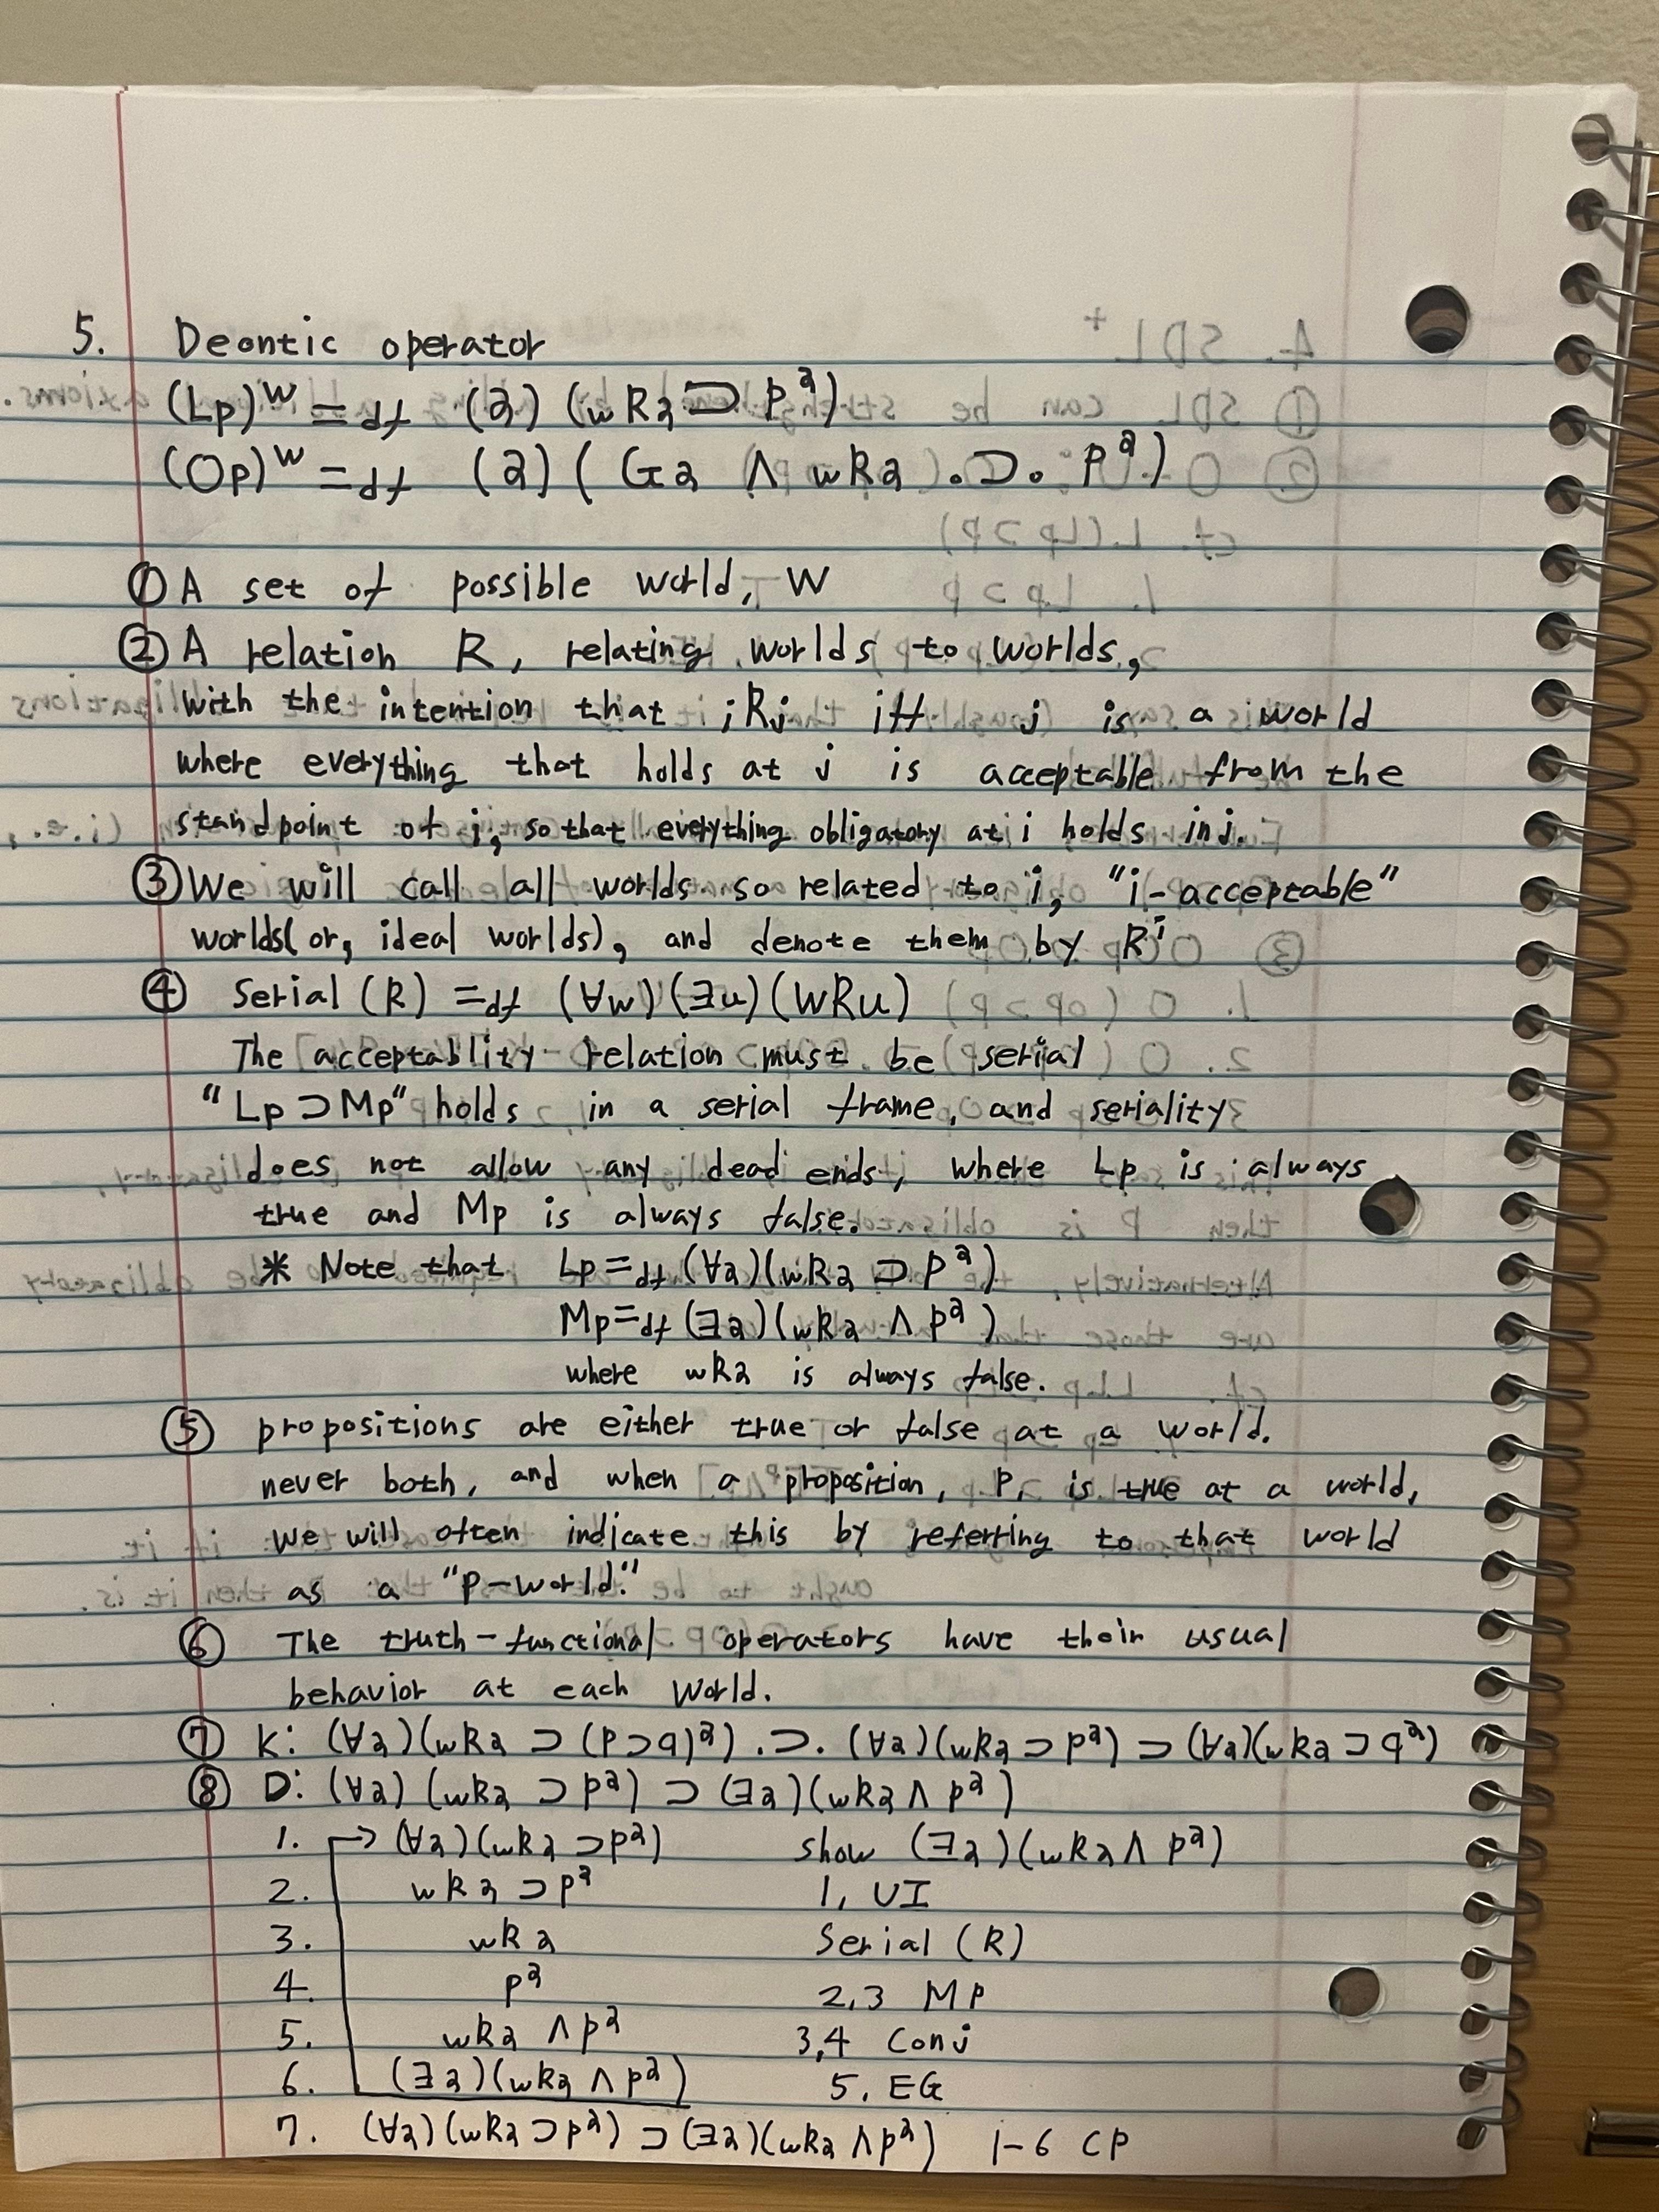 5. Deontic operator
(Lp)ʷ =df (a) (wRa ⊃ pᵃ)
(Op)ʷ =df (a) ( Ga ∧ wRa .⊃. pᵃ)
① A set of possible world, W
② A relation R, relating worlds to worlds,
with the intention that iRj iff j is a world
where everything that holds at j is acceptable from the
standpoint of i, so that everything obligatory at i holds in j.
③ We will call all worlds so related to i, "i-acceptable"
worlds(or, ideal worlds), and denote them by Rⁱ
④ Serial (R) =df (∀w)(∃u)(WRu)
The acceptablity relation must be serial
"Lp⊃Mp" holds in a serial frame, and seriality
does not allow any dead ends, where Lp is always
true and Mp is always false.
* Note that Lp=df (∀a)(wRa ⊃ pᵃ)
Mp=df (∃a)(wRa ∧ pᵃ)
where wRa is always false.
⑤ propositions are either true or false at a world.
never both, and when a proposition, P, is true at a world,
we will often indicate this by referring to that world
as a "p-world."
⑥ The truth-functional operators have their usual
behavior at each world.
⑦ K: (∀a)(wRa ⊃ (p⊃q)ᵃ) .⊃. (∀a)(wRa⊃pᵃ) ⊃ (∀a)(wRa⊃qᵃ)
⑧ D: (∀a) (wRa ⊃ pᵃ) ⊃ (∃a)(wRa ∧ pᵃ)
1. → (∀a)(wRa ⊃pᵃ) show (∃a)(wRa ∧ pᵃ)
2. wRa ⊃pᵃ 1, UI
3. wRa Serial (R)
4. pᵃ 2,3 MP
5. wRa ∧pᵃ 3,4 Conj
6. (∃a)(wRa ∧ pᵃ) 5, EG
7. (∀a)(wRa ⊃pᵃ) ⊃ (∃a)(wRa ∧pᵃ) 1-6 CP